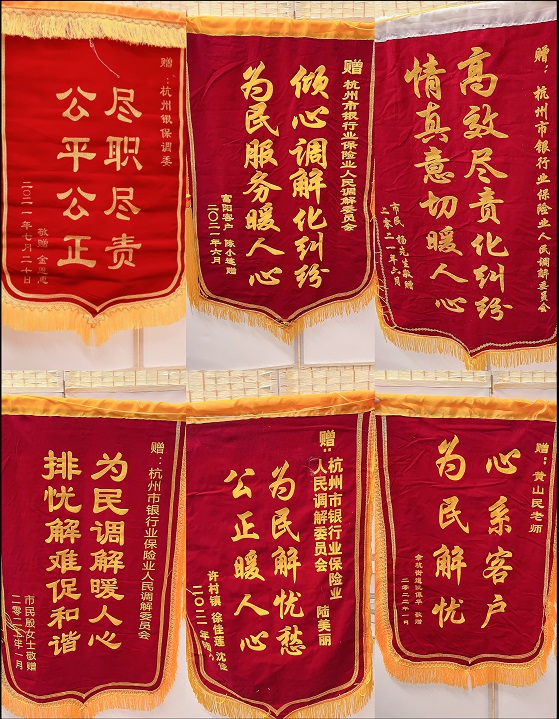 赠：杭州银保调委
尽职尽责
公平公正
敬赠
二〇二一年七月二十日
赠 杭州市银行业保险业人民调解委员会
倾心调解化纠纷
为民服务暖人心
富阳客户 陈小莲赠
二〇二一年六月
赠：杭州市银行业保险业人民调解委员会
高效尽责化纠纷
情真意切暖人心
市民 杨先生敬赠
二零二一年六月
赠：杭州市银行业保险业人民调解委员会
为民调解暖人心
排忧解难促和谐
市民殷女士敬赠
年一月
赠：杭州市银行业保险业
人民调解委员会 陆美丽
为民解忧愁
公正暖人心
许村镇 徐佳莲 沈
二〇二一年
赠：黄山民老师
心系客户
为民解忧
敬赠
二零二二年一月